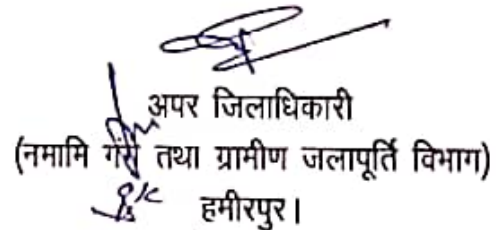 अपर जिलाधिकारी
(नमामि गंगे तथा ग्रामीण जलापूर्ति विभाग)
हमीरपुर।